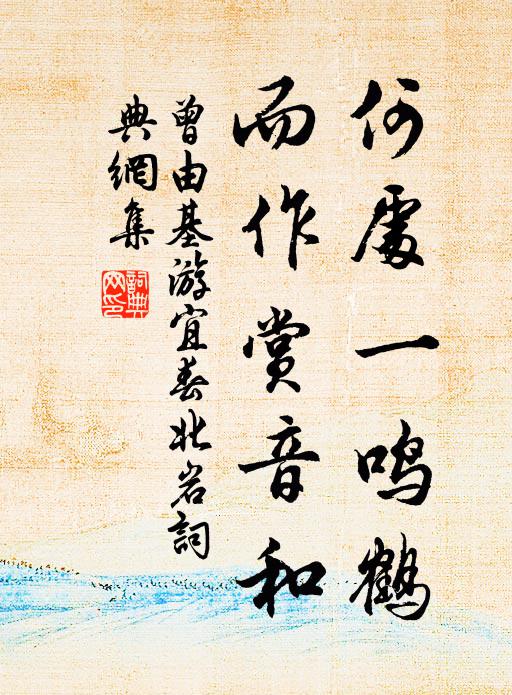 何處一鳴鶴
而作赏音和
曾由基游宜春北岩詞
典網集
詞典
网印